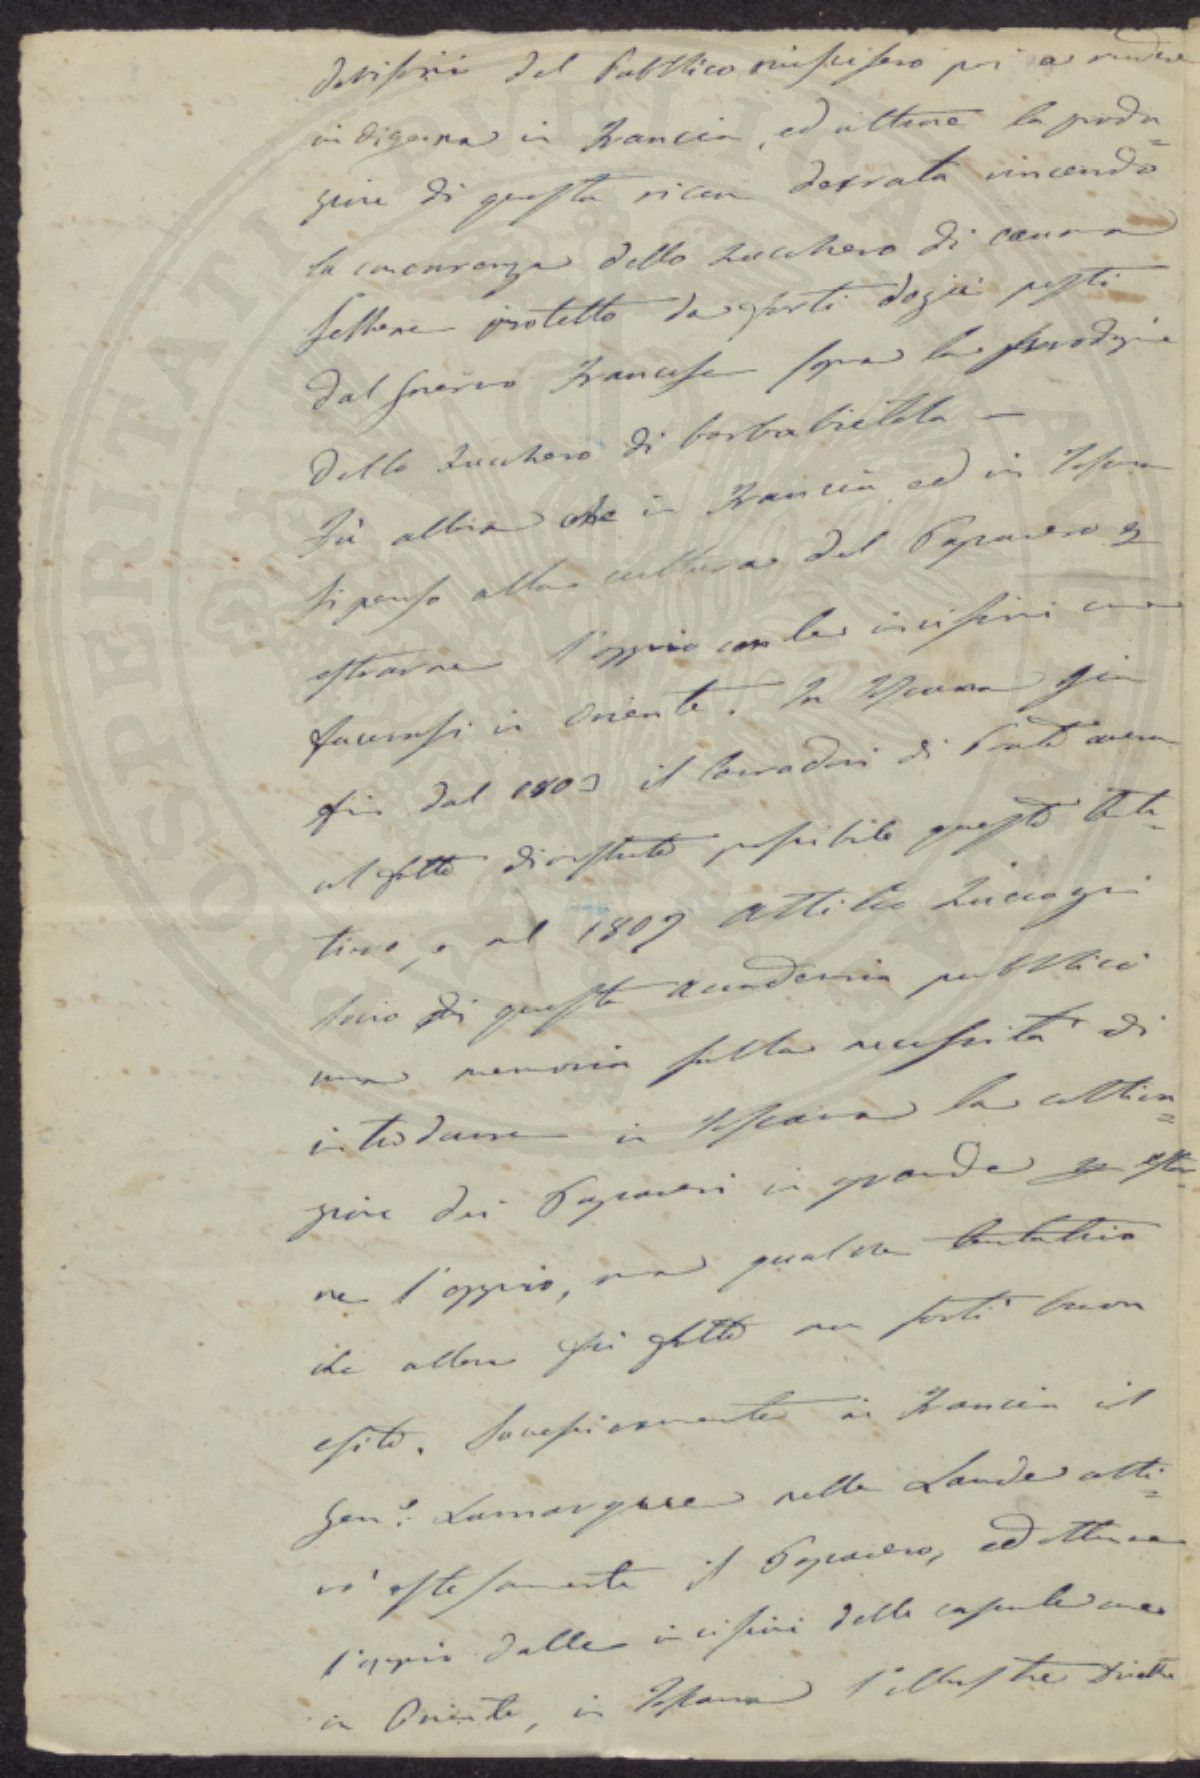 derisori del Pubblico riuscirono poi a rendere
indigena in Francia, ed ottenne la produ=
zione di questa ricca derrata vincendo
la concorrenza dello Zucchero di canna
sebbene protetto da forti dazii posti
dal Governo Francese sopra la produzione
dello Zucchero di barbabietola —
Fù allora che in Francia ed in Toscana
si pensò alla cultura del Papavero e
estrarne l'oppio con le incisioni come
facevasi in Oriente. In Toscana già
fin dal 1803 il Corradori di Prato aveva
al fatto dimostrato possibile questo tenta=
tivo, e nel 1807 Attilio Zuccagni
socio di questa Accademia pubblicò
una memoria sulla necessità di
introdurre in Toscana la coltiva=
zione dei Papaveri in grande per estrar=
ne l'oppio, ma qualche tentativo
che allora fu fatto non sortì buon
esito. Successivamente in Francia il
Gen.e Lamarque nelle Lande colti=
vò estesamente il Papavero, ed ottenne
l'oppio dalle incisioni delle capsule come
in Oriente, in Toscana l'illustre
PROSPERITATI PVBLICAE AVGENDAE